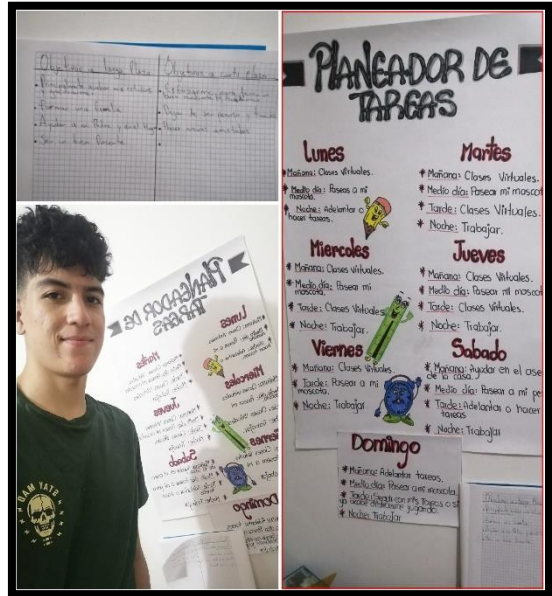 Objetivos a largo Plazo
Objetivos a corto plazo
Formar una familia
Ser un buen Docente
PLANEADOR DE
TAREAS
Lunes
* Mañana: Clases Virtuales.
* Medio día: Paseos a mi
mascota.
* Noche: Adelantar o
hacer tareas.
Martes
* Mañana: Clases Virtuales.
* Medio día: Pasear mi mascot
* Tarde: Clases Virtuales.
* Noche: Trabajar.
Miercoles
* Mañana: Clases Virtuales.
* Medio día: Pasear mi
mascota.
* Tarde: Clases Virtuales
* Noche: Trabajar.
Jueves
* Mañana: Clases Virtuales.
* Medio día: Pasear mi mascot
* Tarde: Clases Virtuales.
* Noche: Trabajar.
Viernes
* Mañana: Clases Virtuales.
* Tarde: Pasear a mi
mascota.
* Noche: Trabajar
Sabado
* Mañana: Ayudar en el ase
de la casa.
* Medio día: Pasear a mi pe
* Tarde: Adelantar o hacer
tareas
* Noche: Trabajar
Domingo
* Mañana: Adelantar tareas.
* Medio día: Pasear a mi mascota.
* Tarde: con mis tareas o si
ya acabe jugando.
* Noche: Trabajar